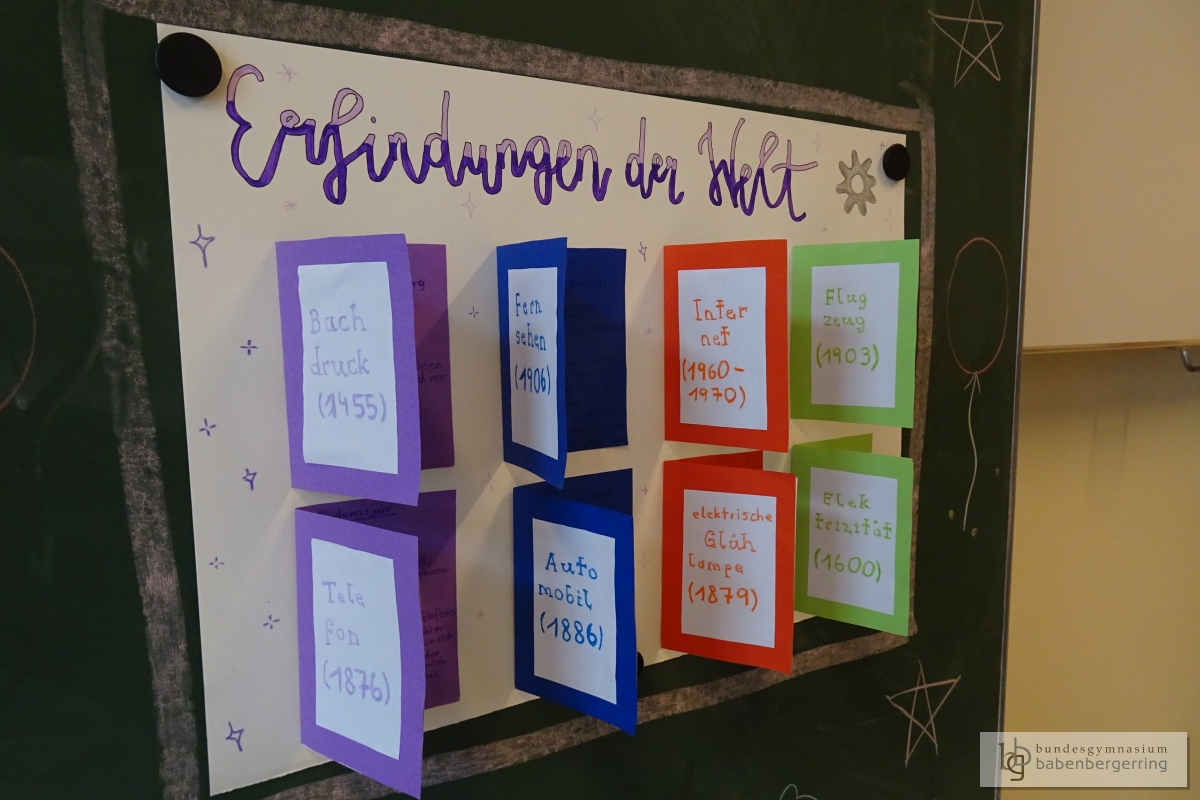 Erfindungen der Welt
Buch
druck
(1455)
Fern
sehen
(1906)
Inter
net
(1960-
1970)
Flug
zeug
(1903)
Tele
fon
(1876)
Auto
mobil
(1886)
elektrische
Glüh
lampe
(1879)
Elek
trizität
(1600)
bundesgymnasium
babenbergerring